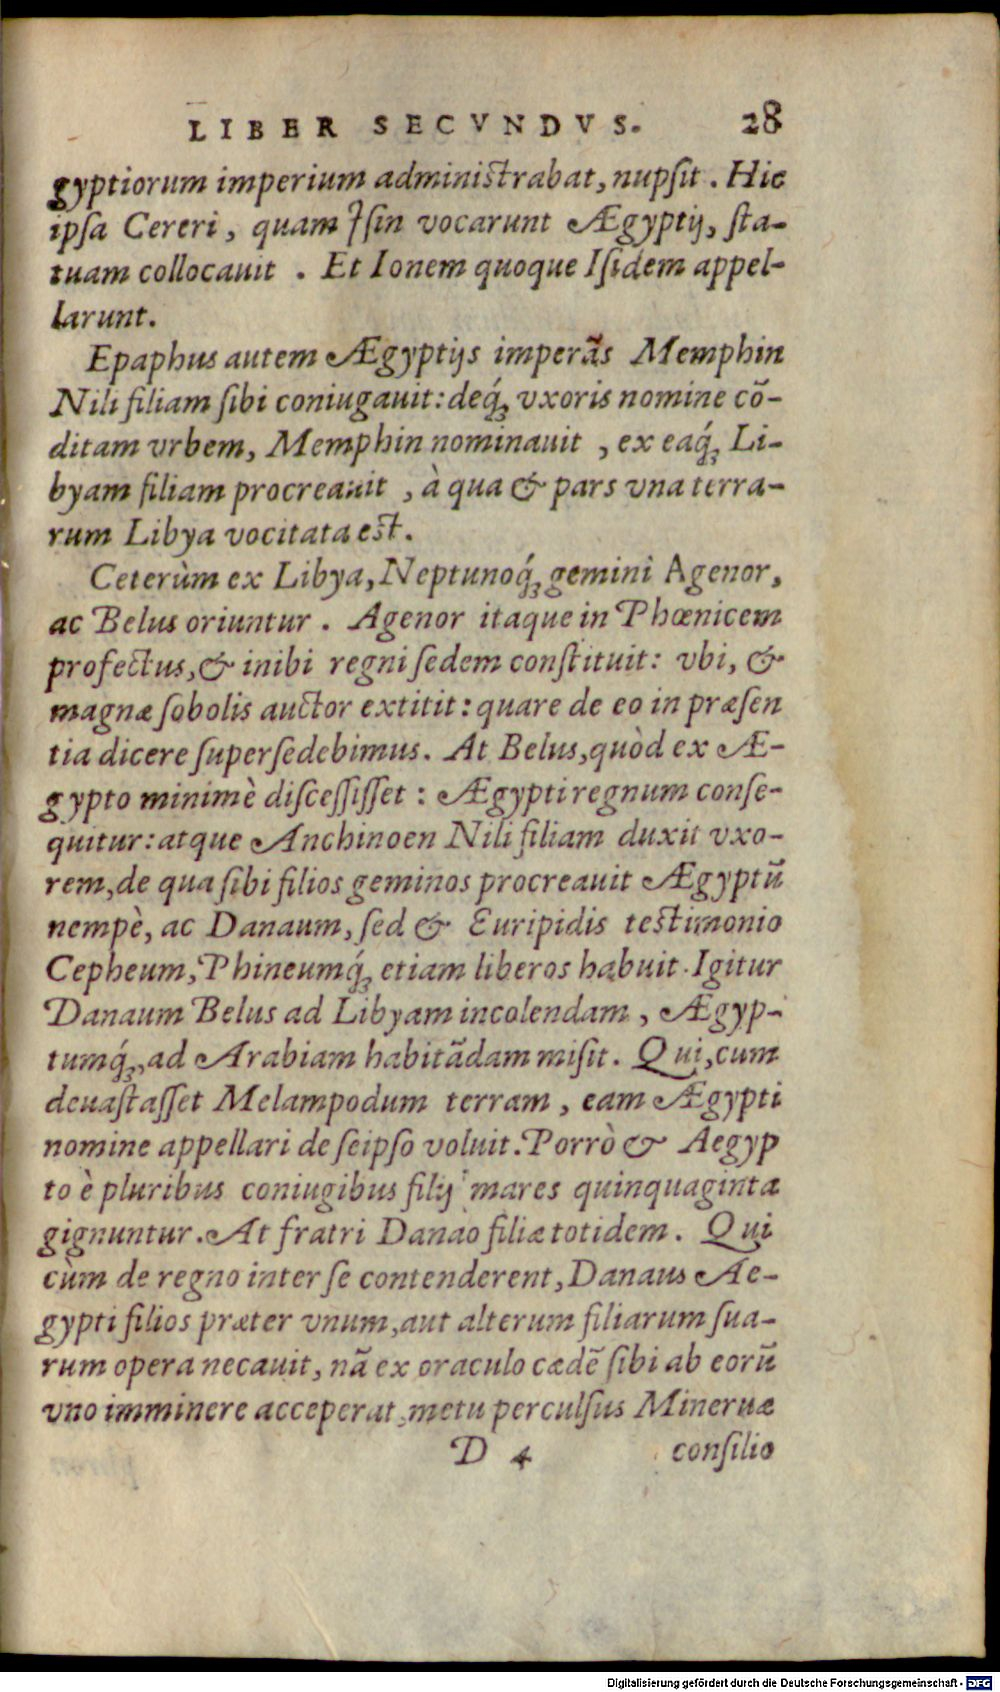 LIBER SECVNDVS. 28
gyptiorum imperium administrabat, nupſit. Hic
ipſa Cereri, quam Iſin vocarunt Ægyptij, ſta-
tuam collocauit . Et Ionem quoque Iſidem appel-
larunt.
Epaphus autem Ægyptijs imperās Memphin
Nili filiam ſibi coniugauit: deq́ꝫ vxoris nomine cō-
ditam vrbem, Memphin nominauit , ex eaq́ꝫ Li-
byam filiam procreauit , à qua & pars vna terra-
rum Libya vocitata est.
Ceterùm ex Libya, Neptunoq́ꝫ gemini Agenor,
ac Belus oriuntur . Agenor itaque in Phœnicem
profectus, & inibi regni ſedem conſtituit: vbi, &
magnæ ſobolis auctor extitit: quare de eo in præſen
tia dicere ſuperſedebimus. At Belus, quòd ex Æ-
gypto minimè diſceſſiſſet : Ægypti regnum conſe-
quitur: atque Anchinoen Nili filiam duxit vxo-
rem, de qua ſibi filios geminos procreauit Ægyptū
nempè, ac Danaum, ſed & Euripidis testimonio
Cepheum, Phineumq́ꝫ etiam liberos habuit. Igitur
Danaum Belus ad Libyam incolendam , Ægyp-
tumq́ꝫ, ad Arabiam habitādam miſit. Qui, cum
deuaſtaſſet Melampodum terram , eam Ægypti
nomine appellari de ſeipſo voluit. Porrò & Aegyp
to è pluribus coniugibus filij mares quinquaginta
gignuntur. At fratri Danao filiæ totidem . Qui
cùm de regno inter ſe contenderent, Danaus Ae-
gypti filios præter vnum, aut alterum filiarum ſua-
rum opera necauit, nā ex oraculo cædē ſibi ab eorū
vno imminere acceperat, metu perculſus Mineruæ
D 4 conſilio
Digitalisierung gefördert durch die Deutsche Forschungsgemeinschaft - DFG